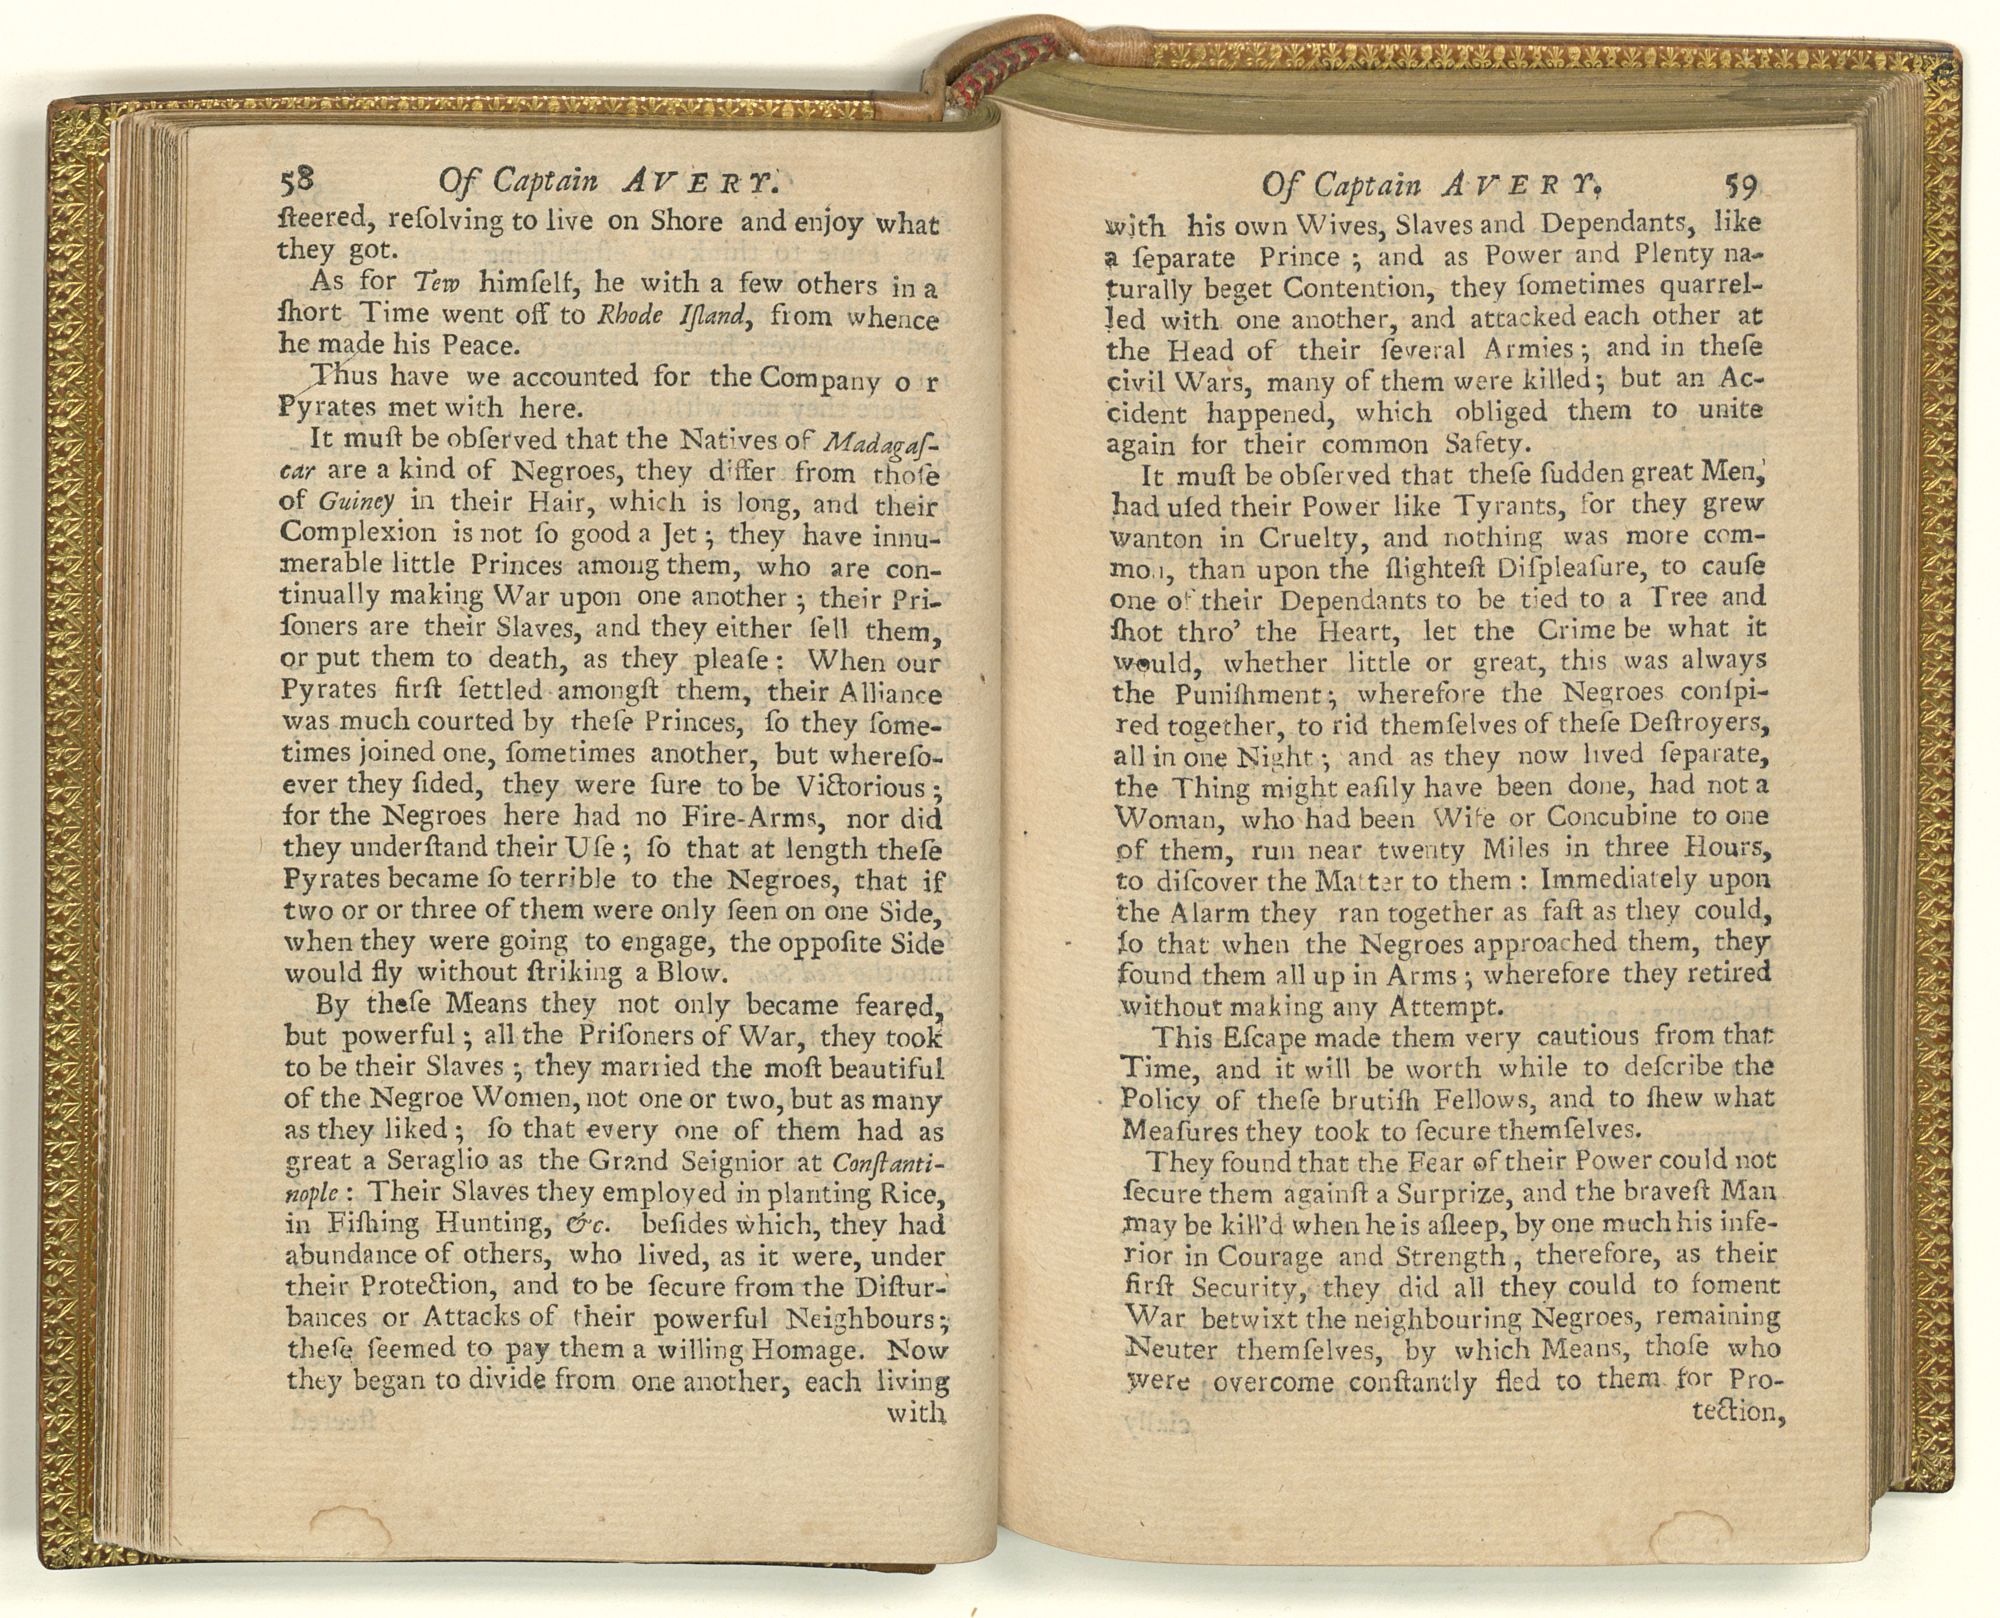 58 Of Captain AVERY.
ſteered, reſolving to live on Shore and enjoy what
they got.
As for Tew himſelf, he with a few others in a
ſhort Time went off to Rhode Iſland, from whence
he made his Peace.
Thus have we accounted for the Company o r
Pyrates met with here.
It muſt be obſerved that the Natives of Madagaſ-
car are a kind of Negroes, they differ from thoſe
of Guiney in their Hair, which is long, and their
Complexion is not ſo good a Jet; they have innu-
merable little Princes among them, who are con-
tinually making War upon one another; their Pri-
ſoners are their Slaves, and they either ſell them,
or put them to death, as they pleaſe: When our
Pyrates firſt ſettled amongſt them, their Alliance
was much courted by theſe Princes, ſo they ſome-
times joined one, ſometimes another, but whereſo-
ever they ſided, they were ſure to be Victorious;
for the Negroes here had no Fire-Arms, nor did
they underſtand their Uſe; ſo that at length theſe
Pyrates became ſo terrible to the Negroes, that if
two or or three of them were only ſeen on one Side,
when they were going to engage, the oppoſite Side
would fly without ſtriking a Blow.
By theſe Means they not only became feared,
but powerful; all the Priſoners of War, they took
to be their Slaves; they married the moſt beautiful
of the Negroe Women, not one or two, but as many
as they liked; ſo that every one of them had as
great a Seraglio as the Grand Seignior at Conſtanti-
nople: Their Slaves they employed in planting Rice,
in Fiſhing Hunting, &c. beſides which, they had
abundance of others, who lived, as it were, under
their Protection, and to be ſecure from the Diſtur-
bances or Attacks of their powerful Neighbours;
theſe ſeemed to pay them a willing Homage. Now
they began to divide from one another, each living
with
Of Captain AVERY. 59
with his own Wives, Slaves and Dependants, like
a ſeparate Prince; and as Power and Plenty na-
turally beget Contention, they ſometimes quarrel-
led with one another, and attacked each other at
the Head of their ſeveral Armies; and in theſe
civil Wars, many of them were killed; but an Ac-
cident happened, which obliged them to unite
again for their common Safety.
It muſt be obſerved that theſe ſudden great Men,
had uſed their Power like Tyrants, for they grew
wanton in Cruelty, and nothing was more com-
mon, than upon the ſlighteſt Diſpleaſure, to cauſe
one of their Dependants to be tied to a Tree and
ſhot thro' the Heart, let the Crime be what it
would, whether little or great, this was always
the Puniſhment; wherefore the Negroes conſpi-
red together, to rid themſelves of theſe Deſtroyers,
all in one Night; and as they now lived ſeparate,
the Thing might eaſily have been done, had not a
Woman, who had been Wife or Concubine to one
of them, run near twenty Miles in three Hours,
to diſcover the Matter to them: Immediately upon
the Alarm they ran together as faſt as they could,
ſo that when the Negroes approached them, they
found them all up in Arms; wherefore they retired
without making any Attempt.
This Eſcape made them very cautious from that
Time, and it will be worth while to deſcribe the
Policy of theſe brutiſh Fellows, and to ſhew what
Meaſures they took to ſecure themſelves.
They found that the Fear of their Power could not
ſecure them againſt a Surprize, and the braveſt Man
may be kill'd when he is aſleep, by one much his infe-
rior in Courage and Strength, therefore, as their
firſt Security, they did all they could to foment
War betwixt the neighbouring Negroes, remaining
Neuter themſelves, by which Means, thoſe who
were overcome conſtantly fled to them for Pro-
tection,